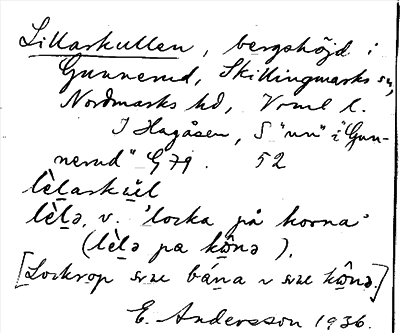 Lillarkullen, bergshöjd i
Gunnerud, Skillingmarks sn,
Nordmarks hd, Vrml l.
I Hagåsen, S "un" i "Gun-
nerud" G 79. 52
lèlarkul
lèlə, v. 'locka på korna'
(lèlə pa kônə).
[Lockrop svæ bána ν svæ kônə.]
E. Andersson 1936.